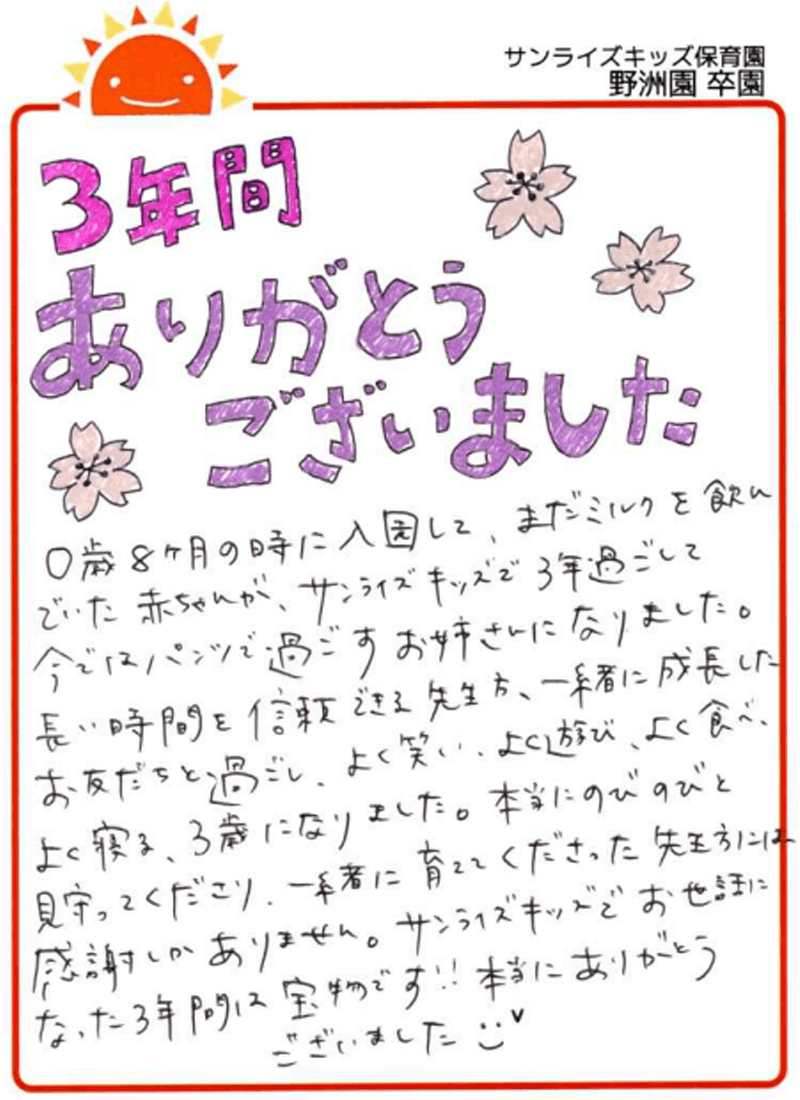 サンライズキッズ保育園
野洲園 卒園
3年間
ありがとう
ございました
0歳8ヶ月の時に入園して、まだミルクを飲ん
でいた赤ちゃんが、サンライズキッズで3年過ごして
今ではパンツで過ごすお姉さんになりました。
長い時間を信頼できる先生方、一緒に成長した
お友だちと過ごし、よく笑い、よく遊び、よく食べ、
よく寝る、3歳になりました。本当にのびのびと
見守ってくださり、一緒に育ててくださった先生方には
感謝しかありません。サンライズキッズでお世話に
なった3年間は宝物です!!本当にありがとう
ございました